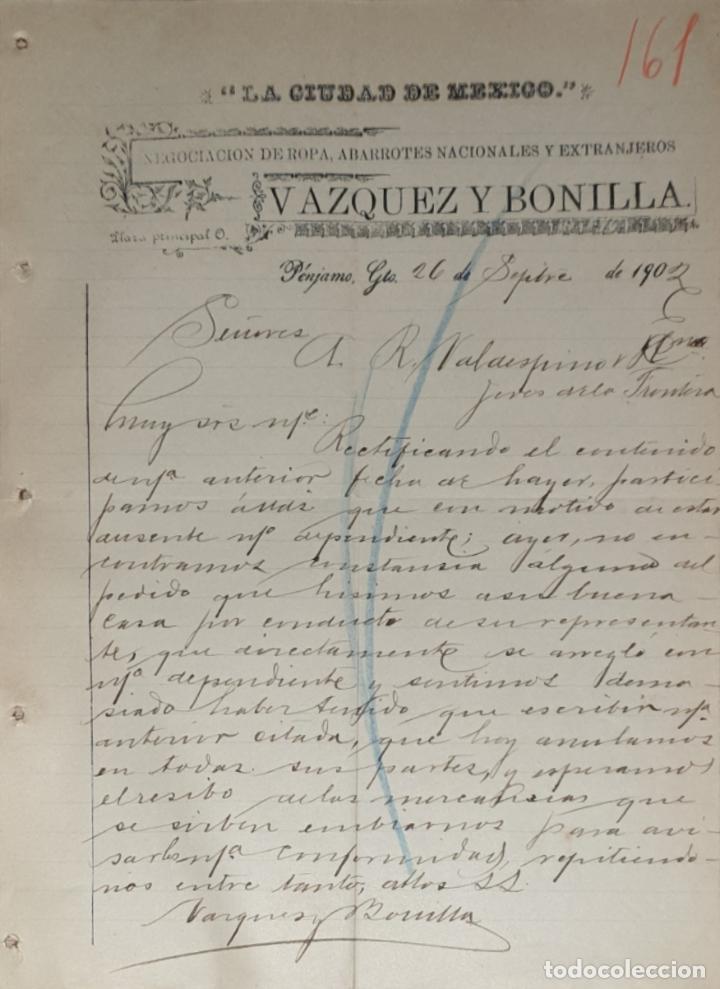 161
"LA CIUDAD DE MEXICO."
NEGOCIACION DE ROPA, ABARROTES NACIONALES Y EXTRANJEROS
VAZQUEZ Y BONILLA.
Plaza principal O.
Pénjamo, Gto. 26 de Sepbre de 1902
Señores
A. R. Valdespino y Hno
Jeres de la Frontera
Muy srs ns.:
Rectificando el contenido
de nª anterior fecha de hayer, partici
pamos á uds que con motivo de estar
ausente nº dependiente; ayer, no en-
contramos constansia alguna del
pedido que hisimos a su buena
casa por conducto de su representan
te, que directamente se arregló con
nº dependiente y sentimos dema
siado haber tenido que escribir nª
anterior citada, que hoy anulamos
en todas sus partes, y esperamos
el resibo de las mercansias que
se sirben embiarnos para avi
sarles nª conformidad, repitiendo-
nos entre tanto, attos SS.
Vazquez y Bonilla
todocoleccion